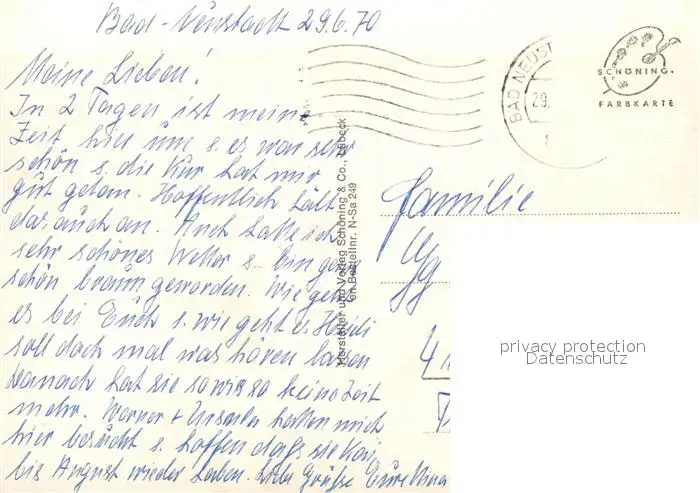 Bad-Neustadt 29.6.70
Meine Lieben!
In 2 Tagen ist meine
Zeit hier um s. es war sehr
schön s. die Kur hat mir
gut getan. Hoffentlich hält
das auch an. Auch hatte ich
sehr schönes Wetter s. bin ganz
schön braun geworden. Wie geht
es bei Euch s. wie geht es Heidi
soll doch mal was hören lassen
danach hat sie sowieso keine Zeit
mehr. Werner + Ursula hatten mich
hier besucht s. hoffen daß sie
bis August wieder haben. Liebe Grüße Eure
Hersteller und Verlag Schöning & Co., Lübeck
Bestellnr. N-Sa 249
BAD NEUST
29.
SCHÖNING
FARBKARTE
Familie
privacy protection
Datenschutz